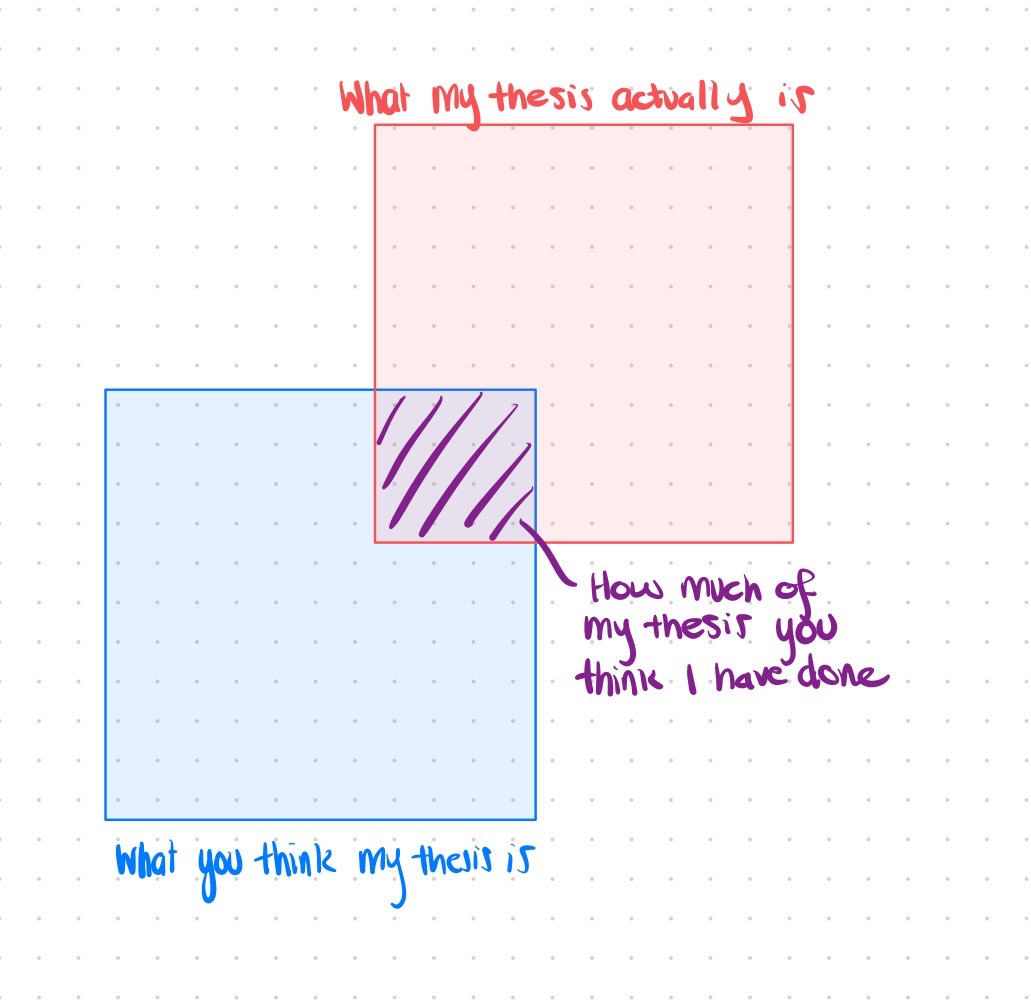 What my thesis actually is
How much of
my thesis you
think I have done
What you think my thesis is